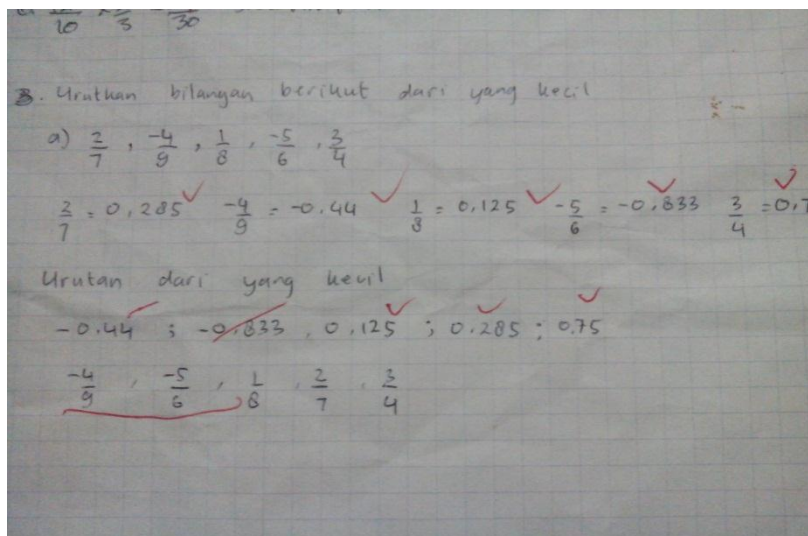 10 5 30
3. Urutkan bilangan berikut dari yang kecil
a) 2/7 , -4/9 , 1/8 , -5/6 , 3/4
2/7 = 0,285 -4/9 = -0.44 1/8 = 0,125 -5/6 = -0,833 3/4 = 0,7
Urutan dari yang kecil
-0.44 ; -0,833 , 0,125 ; 0,285 ; 0.75
-4/9 , -5/6 , 1/8 , 2/7 , 3/4